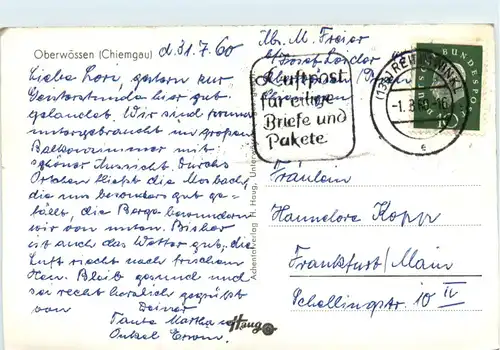 Oberwössen (Chiemgau)
d. 31.7.60
Liebe Lori, gestern zur
Geisterstunde hier gut
gelandet. Wir sind prima
untergebracht im großen
Balkonzimmer mit
schöner Aussicht. Durchs
Örtchen fließt die
die uns besonders gut ge-
fällt, die Berge bewundern
wir von unten. Bisher
ist auch das Wetter gut, die
Luft riecht nach frischem
Heu. Bleib gesund und
sei recht herzlich gegrüßt
von Deiner
Tante Martha u.
Onkel Erwin.
Abs. M. Freier
Luftpost
für eilige
Briefe und
Pakete
(13b) REIT IM WINKL
-1. 8. 60.-16
e
DEUTSCHE BUNDESPOST
10
Achentalverlag H. Haug, Unter
Haug
Fräulein
Hannelore Kopp
Frankfurt/Main
Schellingstr. 10 IV